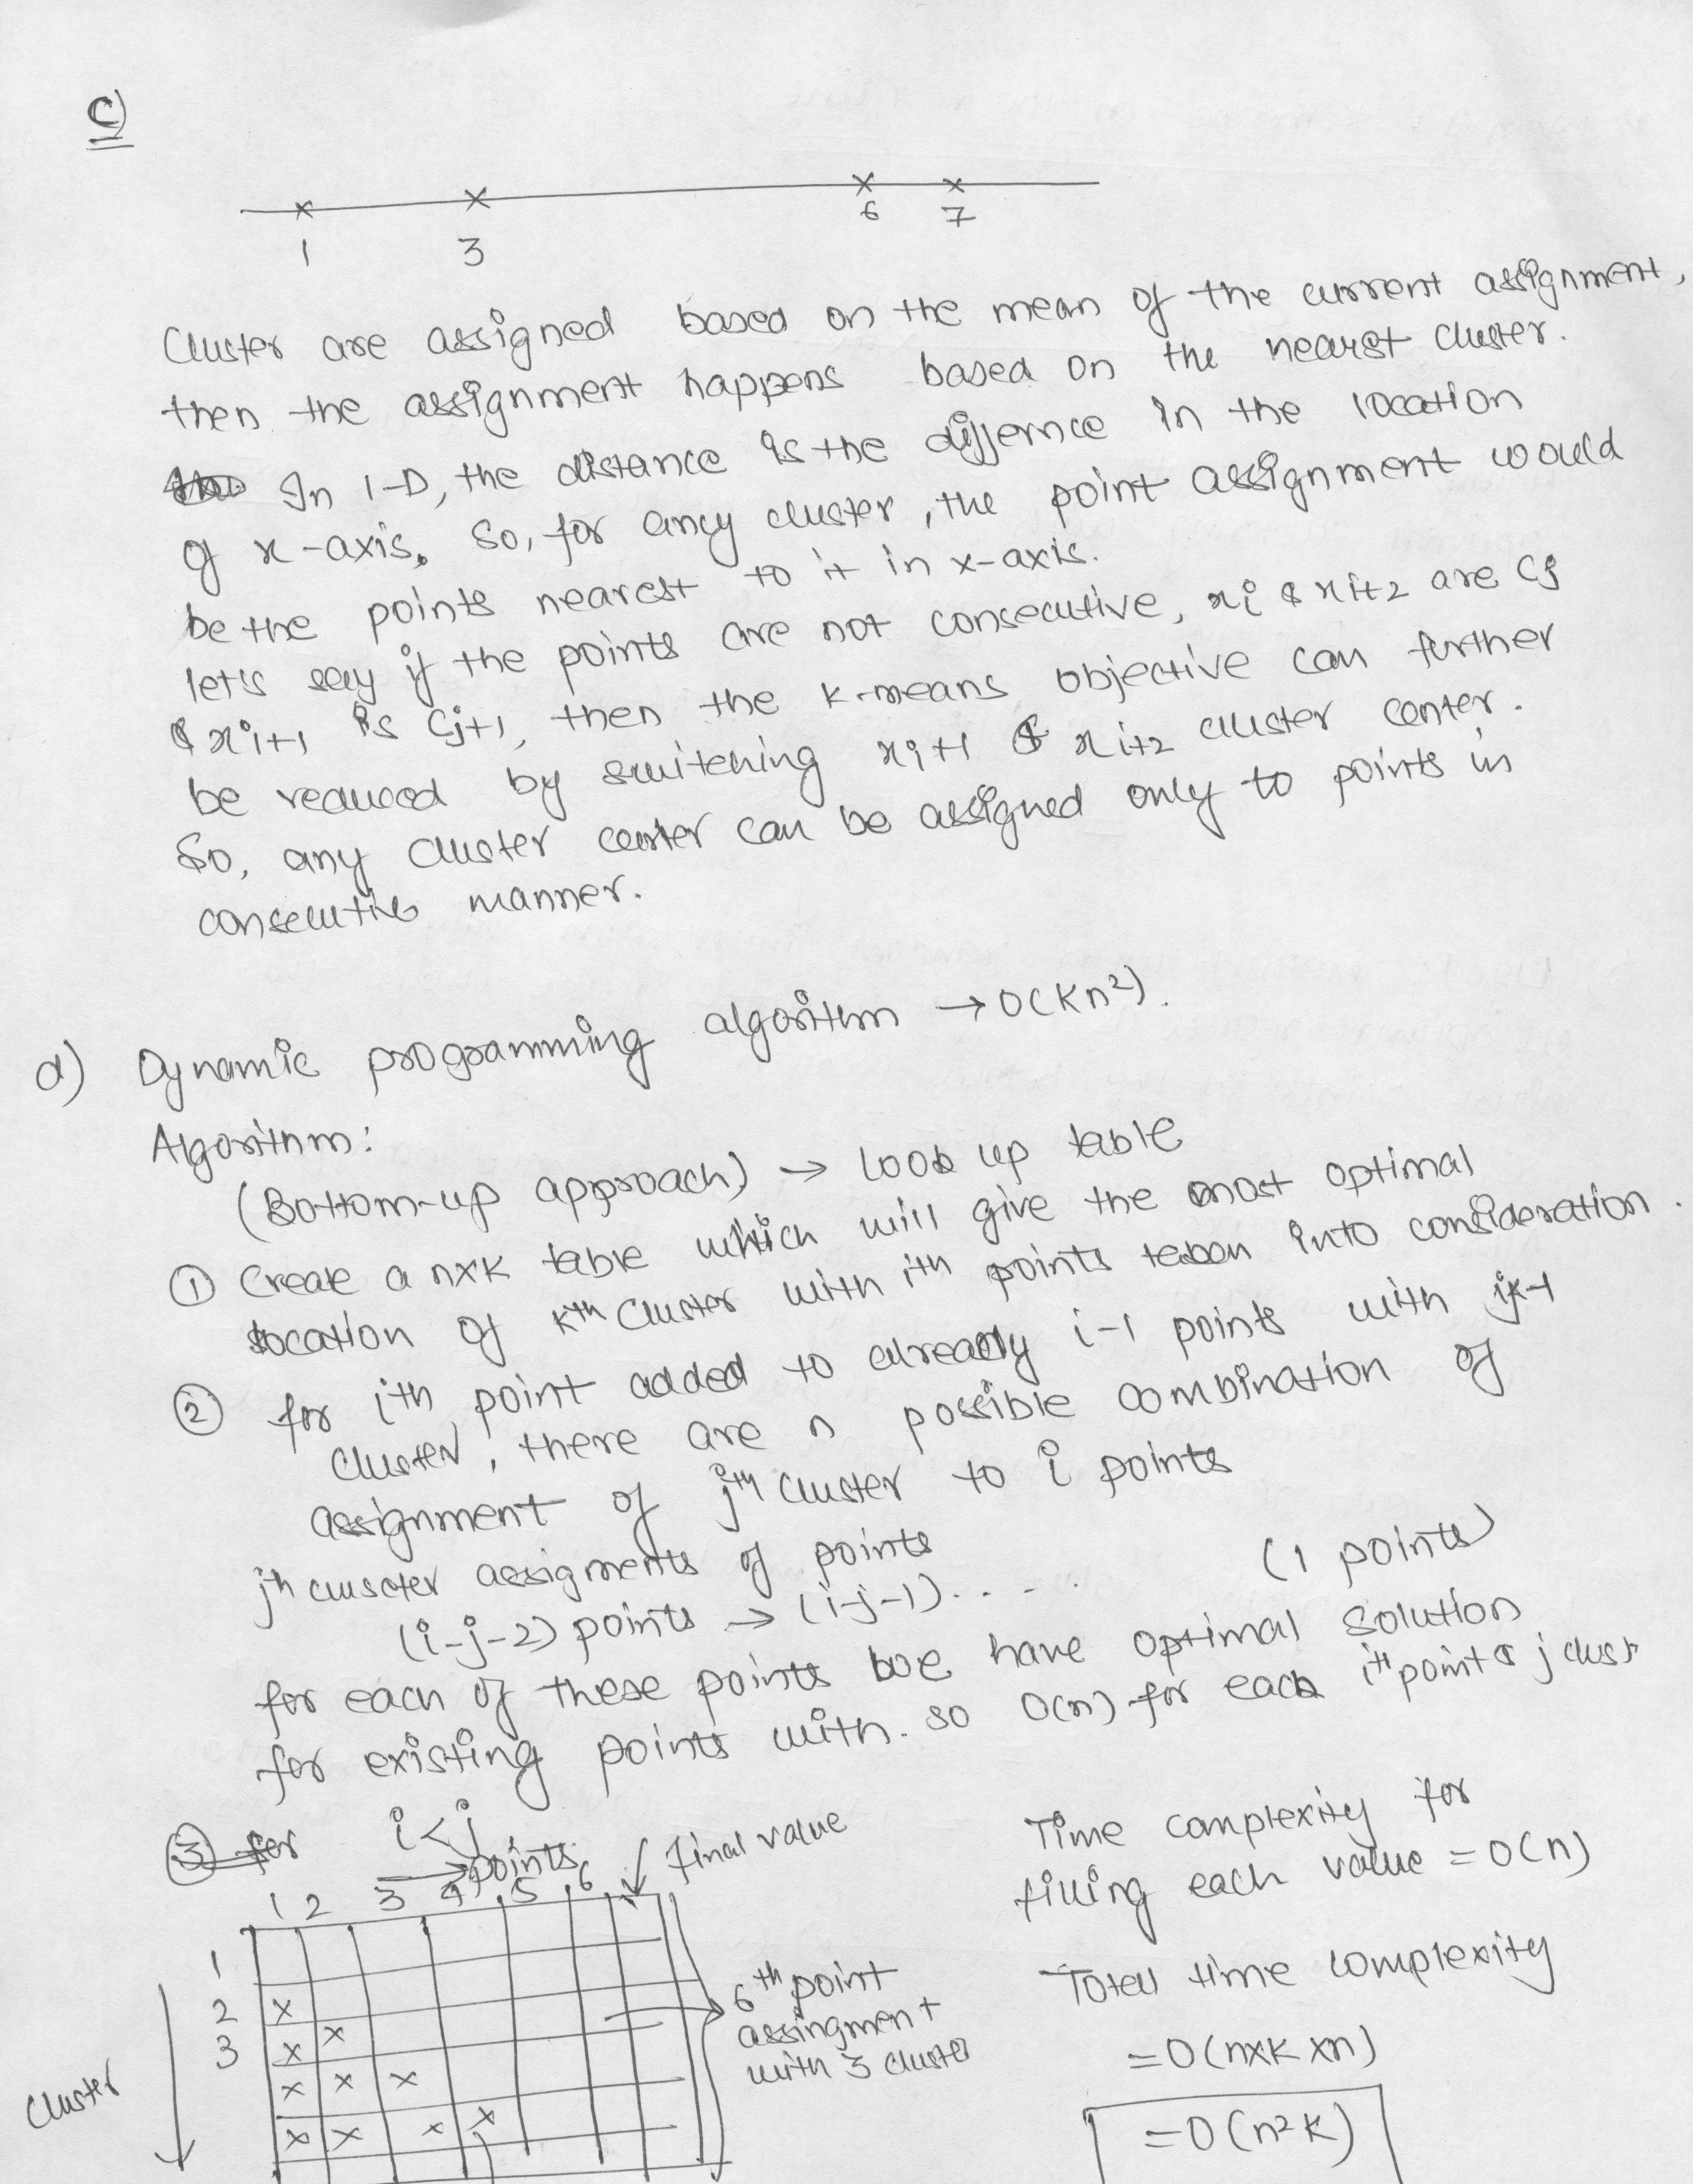 c)
1 3 6 7
Cluster are assigned based on the mean of the current assignment,
then the assignment happens based on the nearest cluster.
In 1-D, the distance is the differnce in the location
of x-axis. So, for any cluster, the point assignment would
be the points nearest to it in x-axis.
let's say if the points are not consecutive, xi & xi+2 are Cj
& xi+1 is Cj+1, then the k-means objective can further
be reduced by switching xi+1 & xi+2 cluster center.
So, any cluster center can be assigned only to points in
consecutive manner.
d) Dynamic programming algorithm → O(Kn²).
Algorithm:
(Bottom-up approach) → Look up table
① Create a n×k table which will give the most optimal
location of kth cluster with ith points taken into consideration.
② for ith point added to already i-1 points with
cluster, there are n possible combination of
assignment of jth cluster to i points
jth cluscter assigments of points
(i-j-2) points → (i-j-1).... (1 points)
for each of these points we have optimal solution
for existing points with. so O(n) for each ith point & j clust
③ for i<j
→ points
1 2 3 4 5 6 Final value
Time complexity for
filling each value = O(n)
1
2 x
3 x x
x x x
x x x x
Cluster
6th point
assingment
with 3 cluster
Total time complexity
= O(n×k×n)
= O(n²k)